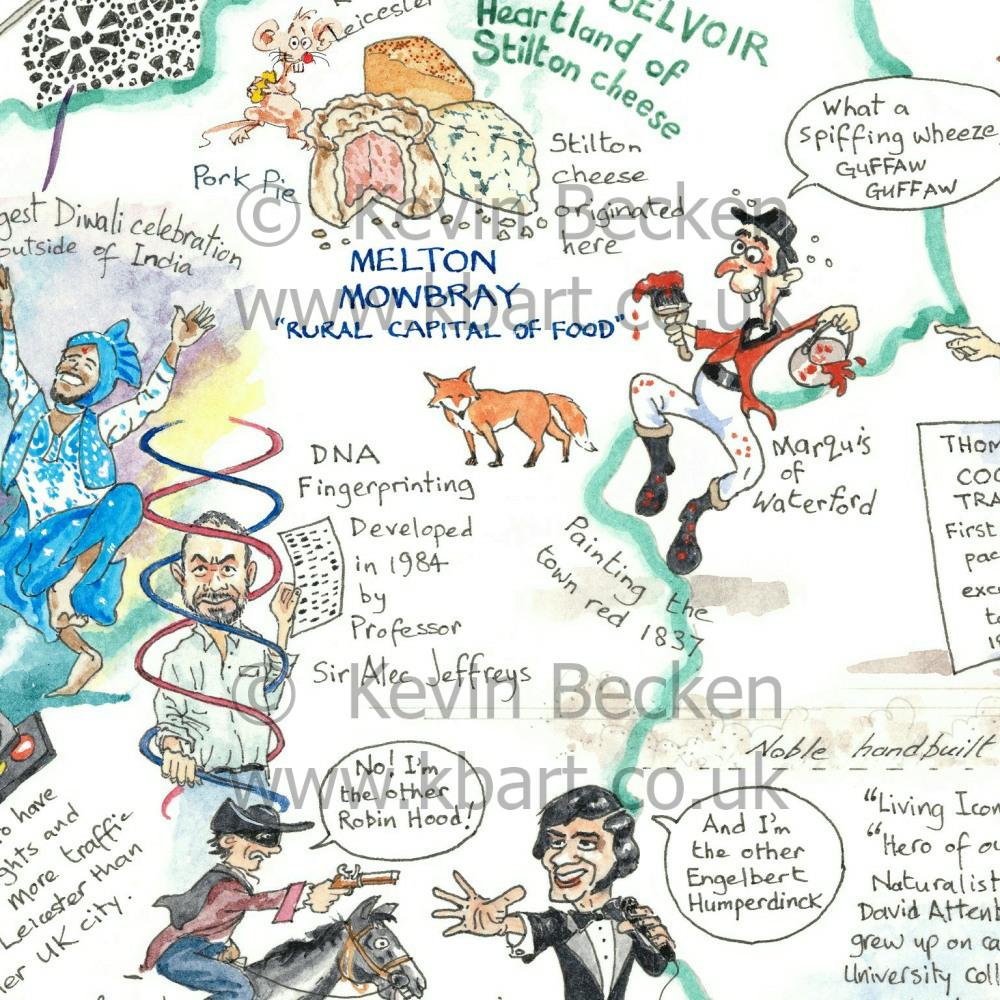 Leicester
BELVOIR
Heartland of
Stilton cheese
What a
spiffing wheeze
GUFFAW
GUFFAW
Pork Pie
Stilton
cheese
originated
here
© Kevin Becken
www.kbart.co.uk
Diwali celebration
outside of India
MELTON
MOWBRAY
"RURAL CAPITAL OF FOOD"
DNA
Fingerprinting
Developed
in 1984
by
Professor
Sir Alec Jeffreys
Marquis
of
Waterford
Painting the
town red 1837
First
© Kevin Becken
www.kbart.co.uk
Noble handbuilt
No! I'm
the other
Robin Hood!
And I'm
the other
Engelbert
Humperdinck
have
and
more traffic
Leicester than
UK city.
"Living
"Hero of
Naturalist
David
grew up on
University